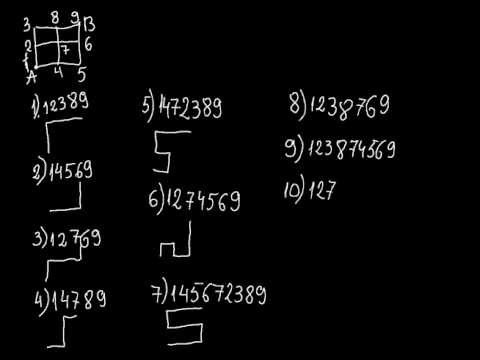 3 8 9 B
2 7 6
1 A 4 5
1) 12389
2) 14569
3) 12769
4) 14789
5) 1472389
6) 1274569
7) 145672389
8) 1238769
9) 123874569
10) 127